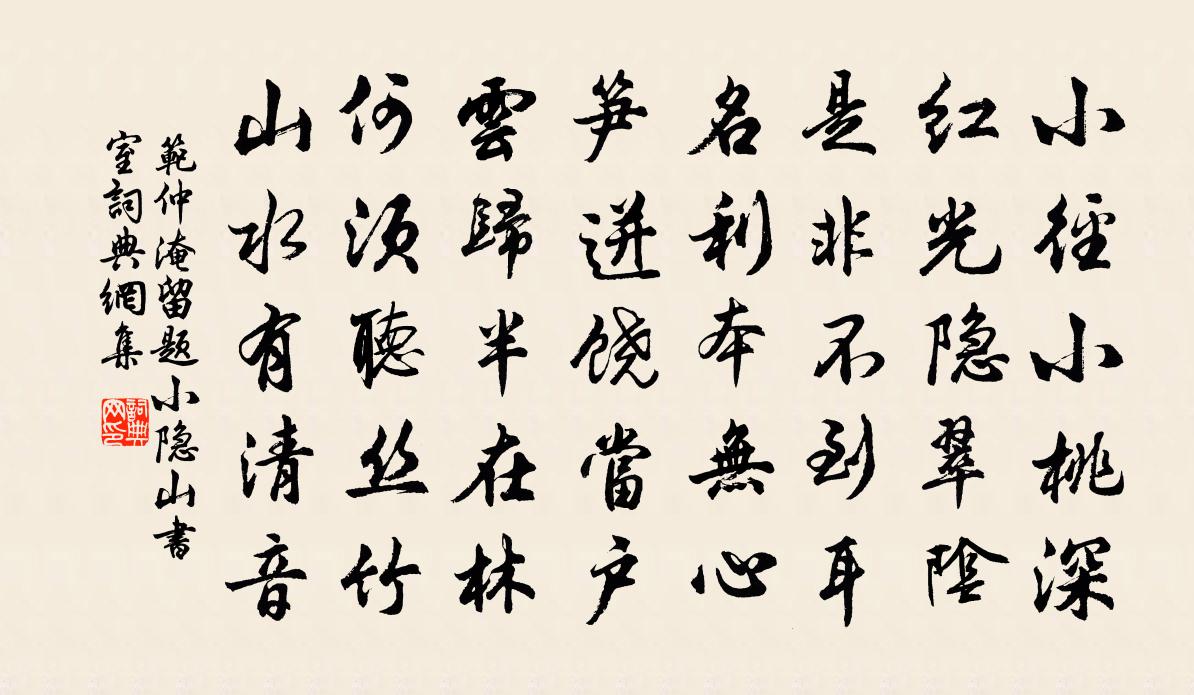 小徑小桃深
红光隐翠陰
是非不到耳
名利本無心
笋迸饶當户
雲歸半在林
何须聽丝竹
山水有清音
範仲淹留题小隐山書
室詞典網集
詞典
网印